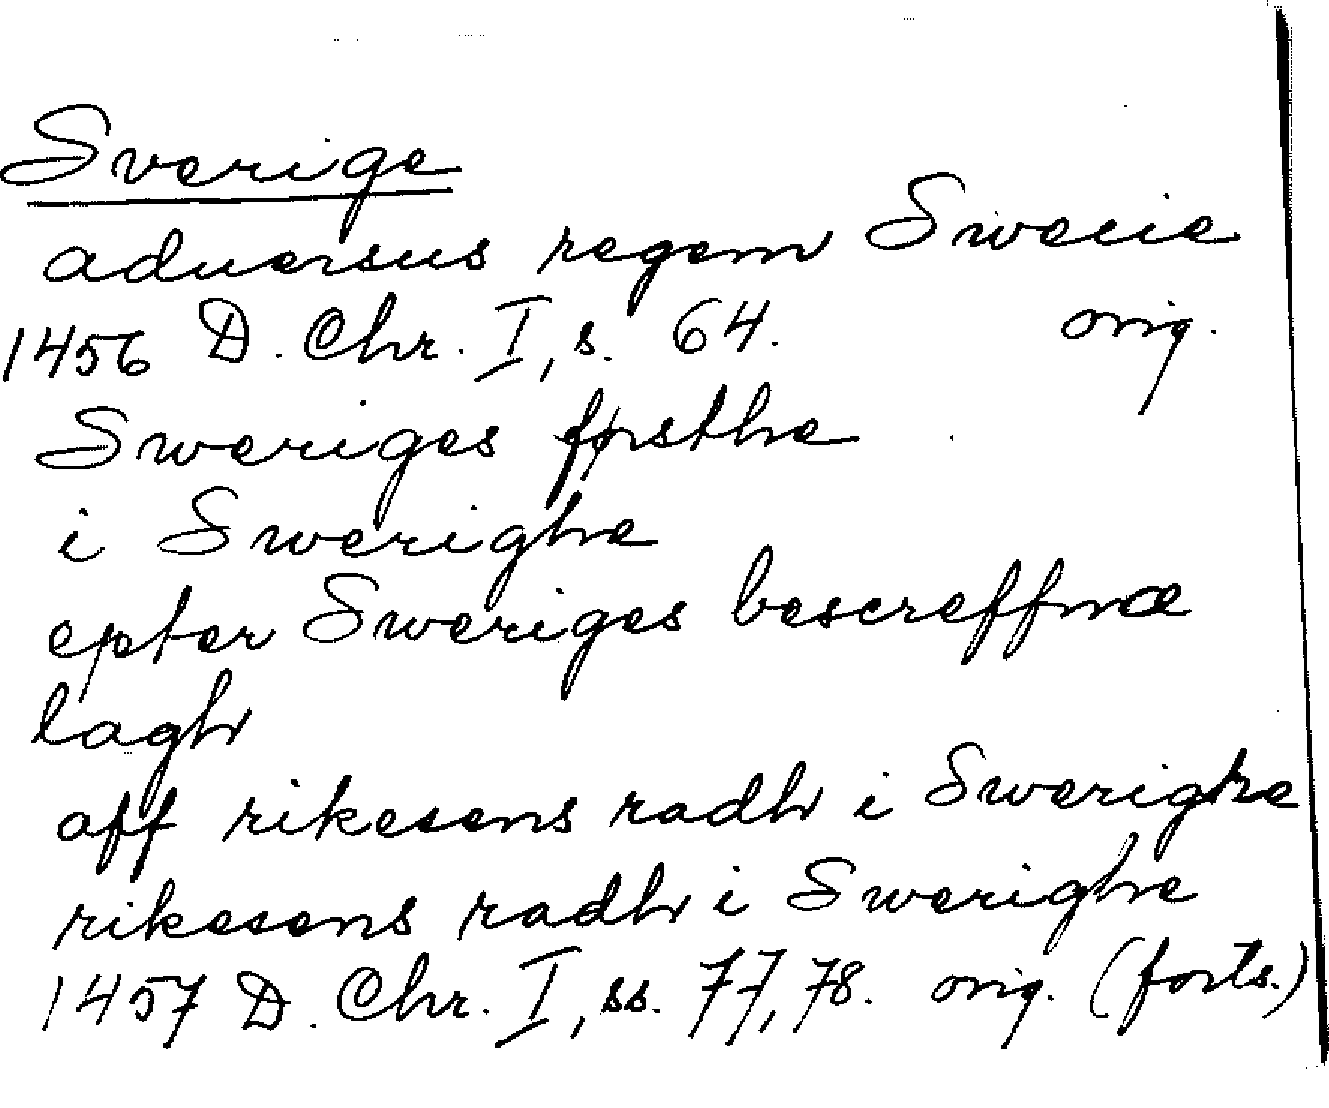 Sverige
aduersus regem Swecie
1456 D. Chr. I, s. 64. orig.
Sweriges førsthe
i Swerighe
epter Sweriges bescreffnæ
lagh
aff rikesens radh i Swerighe
rikesens radh i Swerighe
1457 D. Chr. I, ss. 77, 78. orig. (forts.)